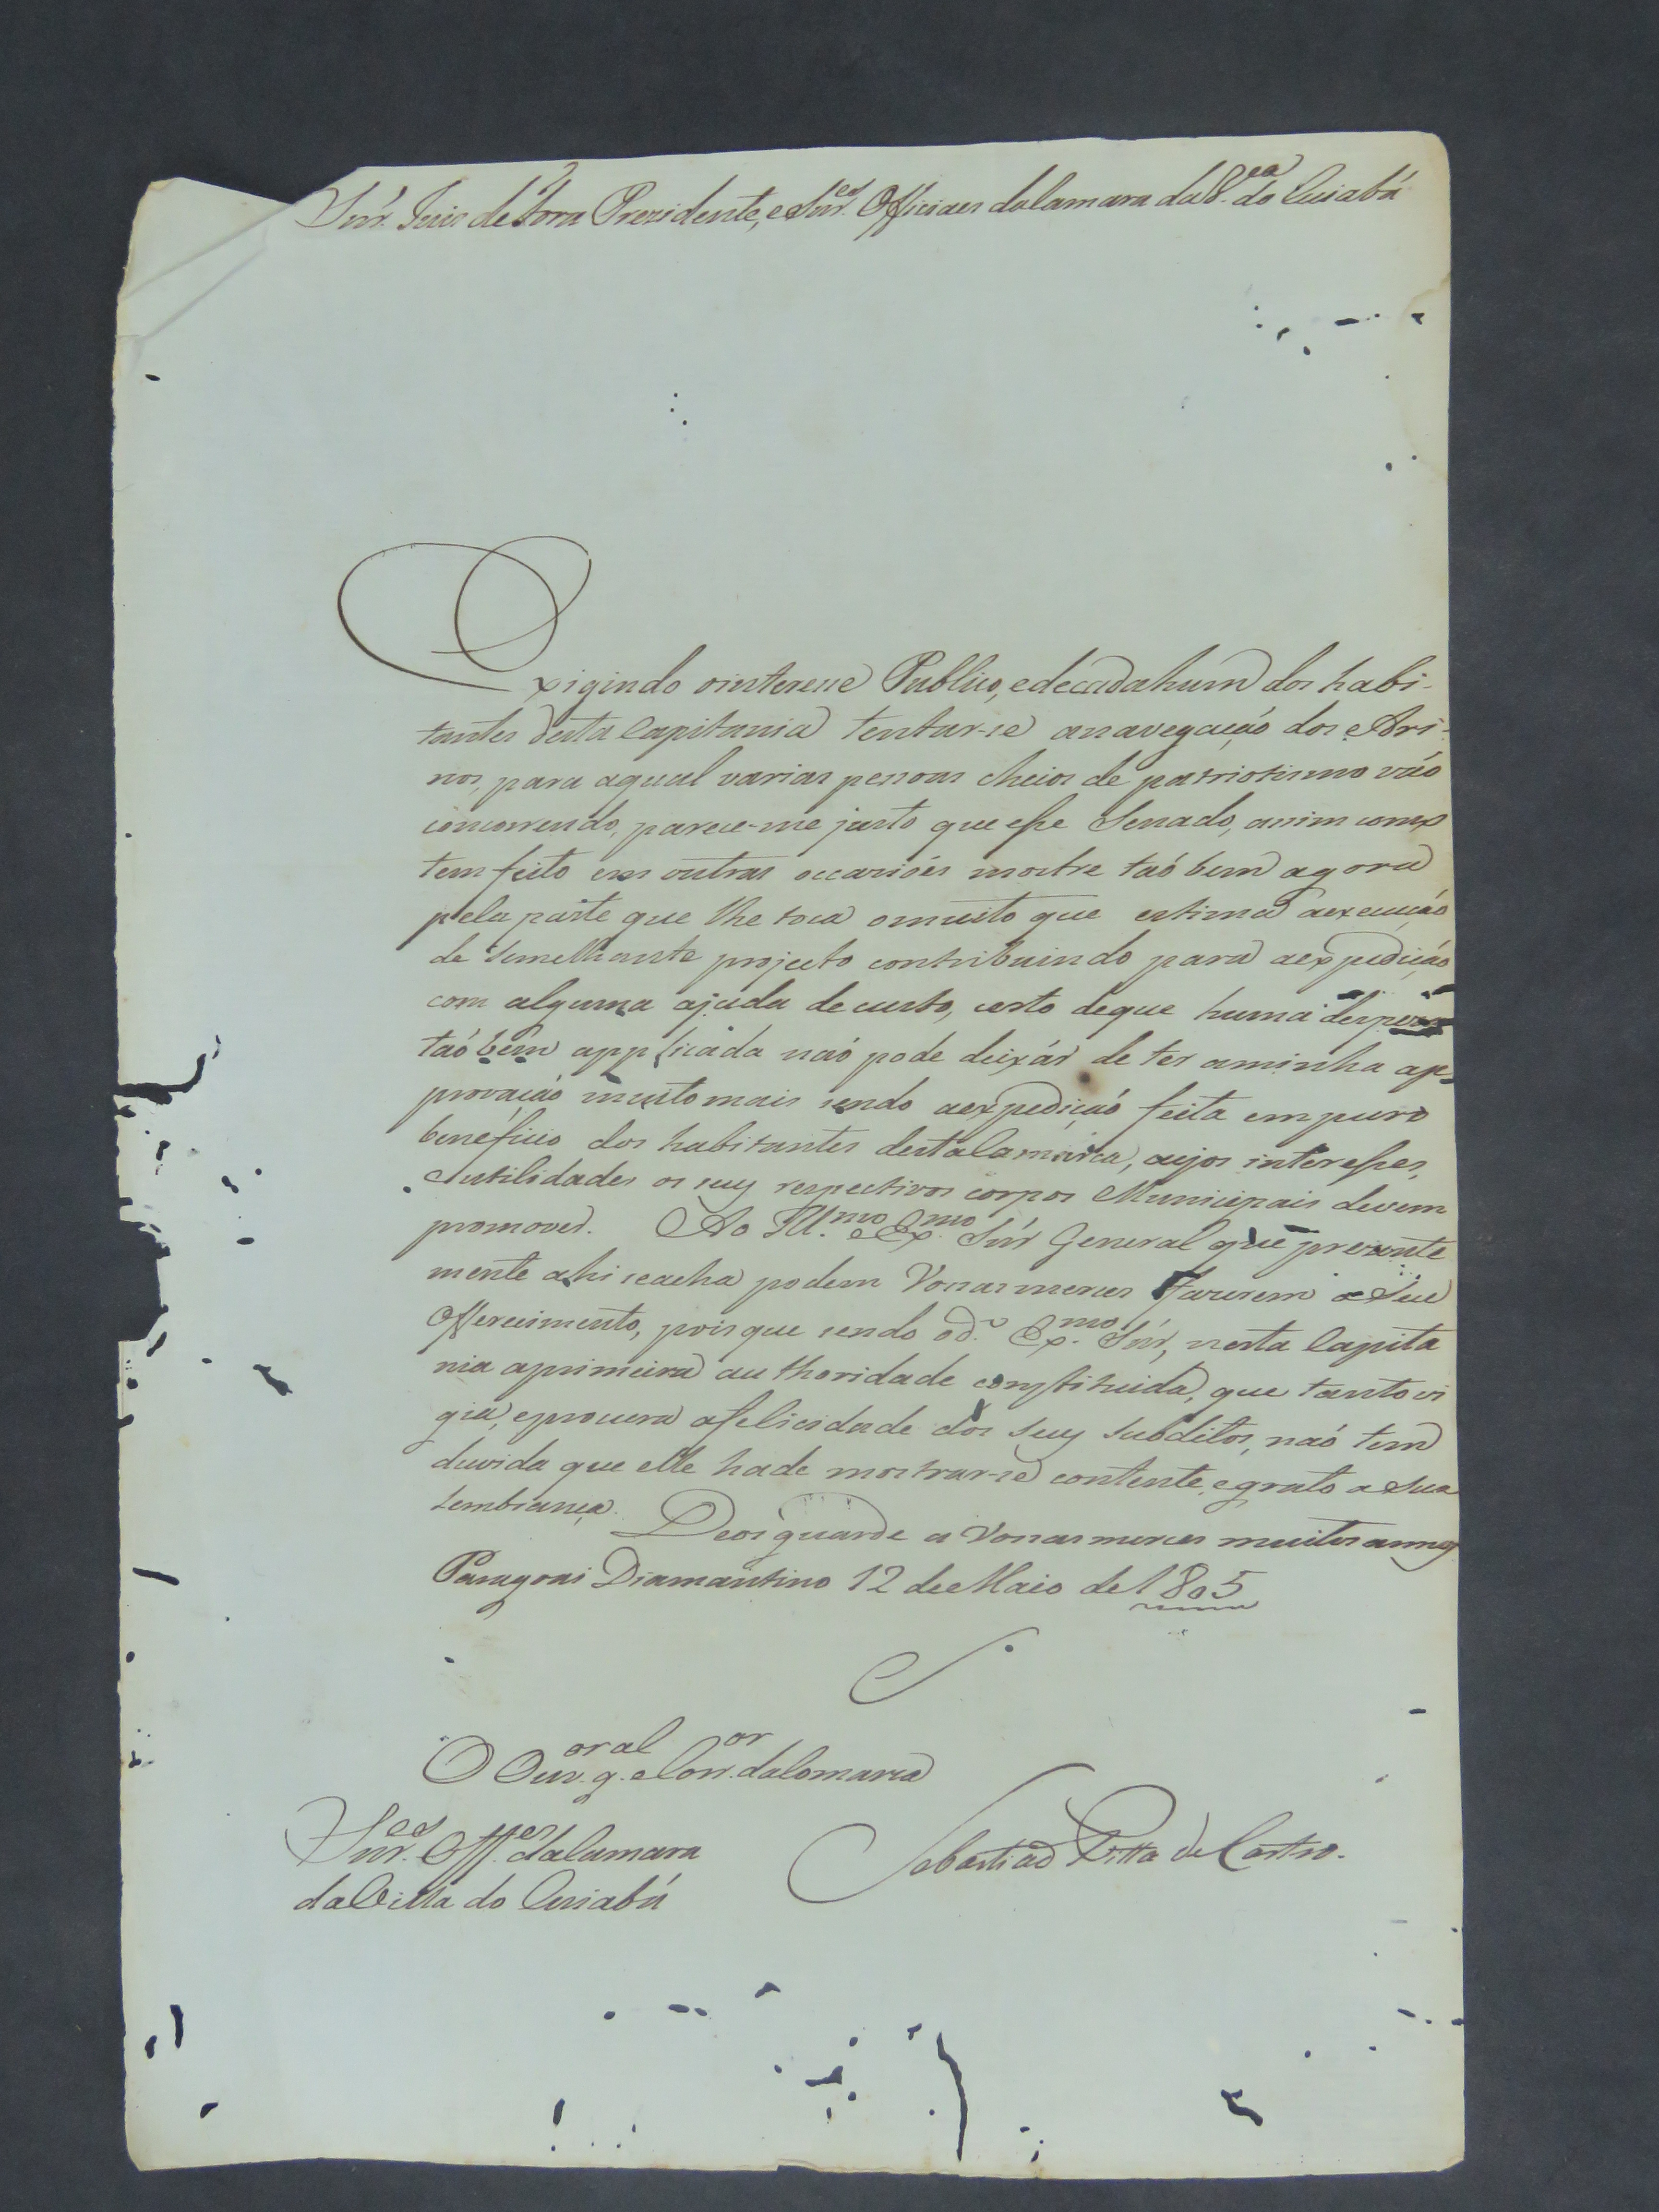 Snr. Juis de Fora Prezidente, e Snr.es Officiaes da Camara da V.ª do Cuiabá
Exigindo o interesse Publico, e de cada hum dos habi-
tantes desta Capitania tentar-se a navegação dos Ari-
nos, para a qual varias pessoas cheios de patriotismo vão
concorrendo, parece-me justo que esse Senado, assim como
tem feito em outras occasiões mostre taõ bem agora
pela parte que lhe toca o muito que estima a execução
de semelhante projecto contribuindo para a expedição
com alguma ajuda de custo, certo de que huma despeza
taõ bem applicada naõ pode deixár de ter a minha ap-
provação muito mais sendo a expedição feita em puro
beneficio dos habitantes desta Comarca, cujos interesses,
e utilidades os seus respectivos corpos Municipais devem
promover. Ao Ill.mo e Ex.mo Snr General que prezente
mente ahi se acha podem Vossasmerces fazerem o seu
Offerecimento, pois que sendo o d.º Ex.mo Snr, nesta Capita
nia a primeira authoridade constituida, que tanto vi
gia, e procura a felicidade dos seus subditos, naõ tem
duvida que elle hade mostrar-se contente, e grato a sua
lembrança. Deos guarde a Vossasmerces muitos annos
Paragoai Diamantino 12 de Maio de 1805
O Ouv.or g.al e Corr.or da Comarca
Snr.es Off.es da Camara
da Villa do Cuiabá
Sebastiaõ Pitta de Castro.